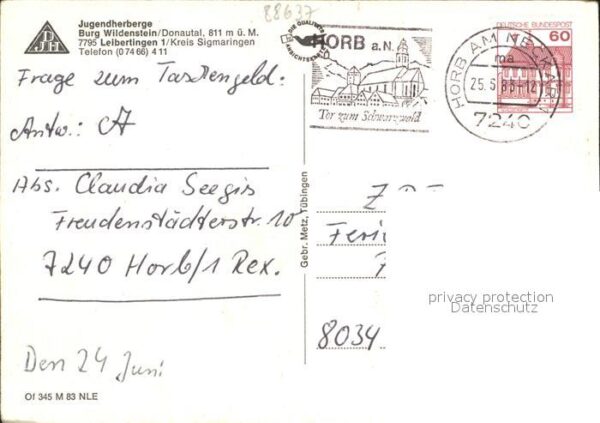 88637
DJH
Jugendherberge
Burg Wildenstein/Donautal, 811 m ü. M.
7795 Leibertingen 1/Kreis Sigmaringen
Telefon (0 74 66) 4 11
HORB a.N.
Tor zum Schwarzwald
DEUTSCHE BUNDESPOST
60
HORB AM NECKAR
ma
25.5.83-12
7240
Frage zum Taschengeld:
Antw.: A
Abs. Claudia Seegis
Freudenstädterstr. 10
7240 Horb/1 Rex.
Gebr. Metz, Tübingen
Feri
8034
privacy protection
Datenschutz
Den 24 Juni
Of 345 M 83 NLE